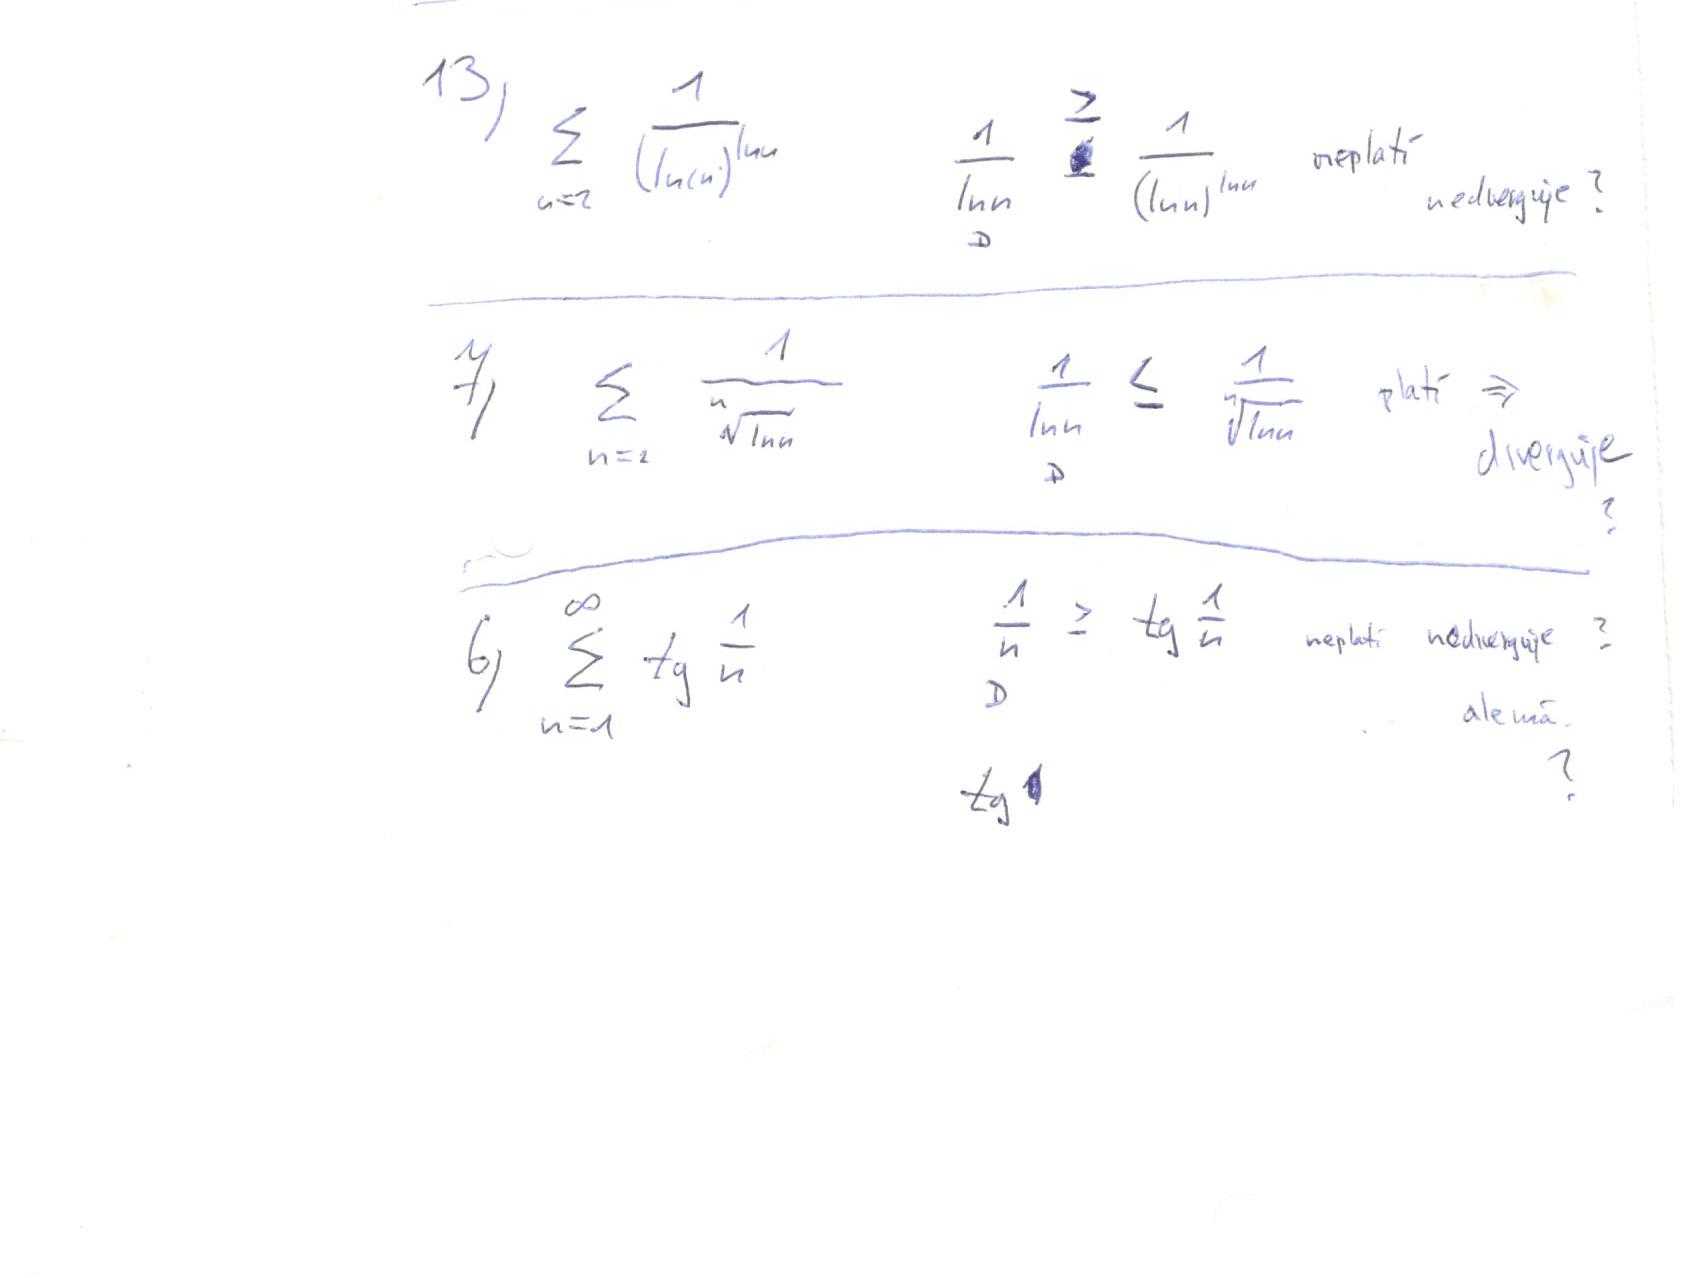 13) ∑ n=2 1/(ln(n))^ln n 1/ln n ≥ 1/(ln n)^ln n neplatí
D nediverguje ?
7) ∑ n=2 1/ⁿ√ln n 1/ln n ≤ 1/ⁿ√ln n platí ⇒
D diverguje
?
6) ∞ ∑ n=1 tg 1/n 1/n ≥ tg 1/n neplatí nediverguje ?
D ale má.
tg ?